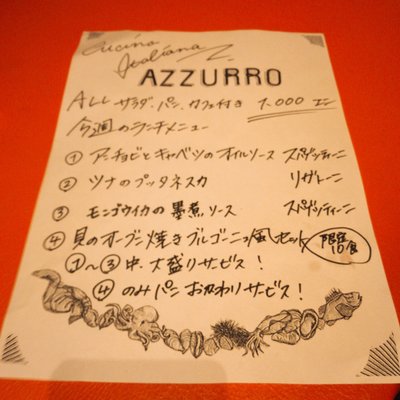 Cucina
Italiana
AZZURRO
ALL サラダ・パン・カフェ付き 1,000エン
今週のランチメニュー
① アンチョビとキャベツのオイルソース スパゲッティーニ
② ツナのプッタネスカ リガトーニ
③ モンゴウイカの墨煮ソース スパゲッティーニ
④ 貝のオーブン焼きブルゴーニュ風セット 限定10食
①〜③中、大盛りサービス!
④のみパンおかわりサービス!